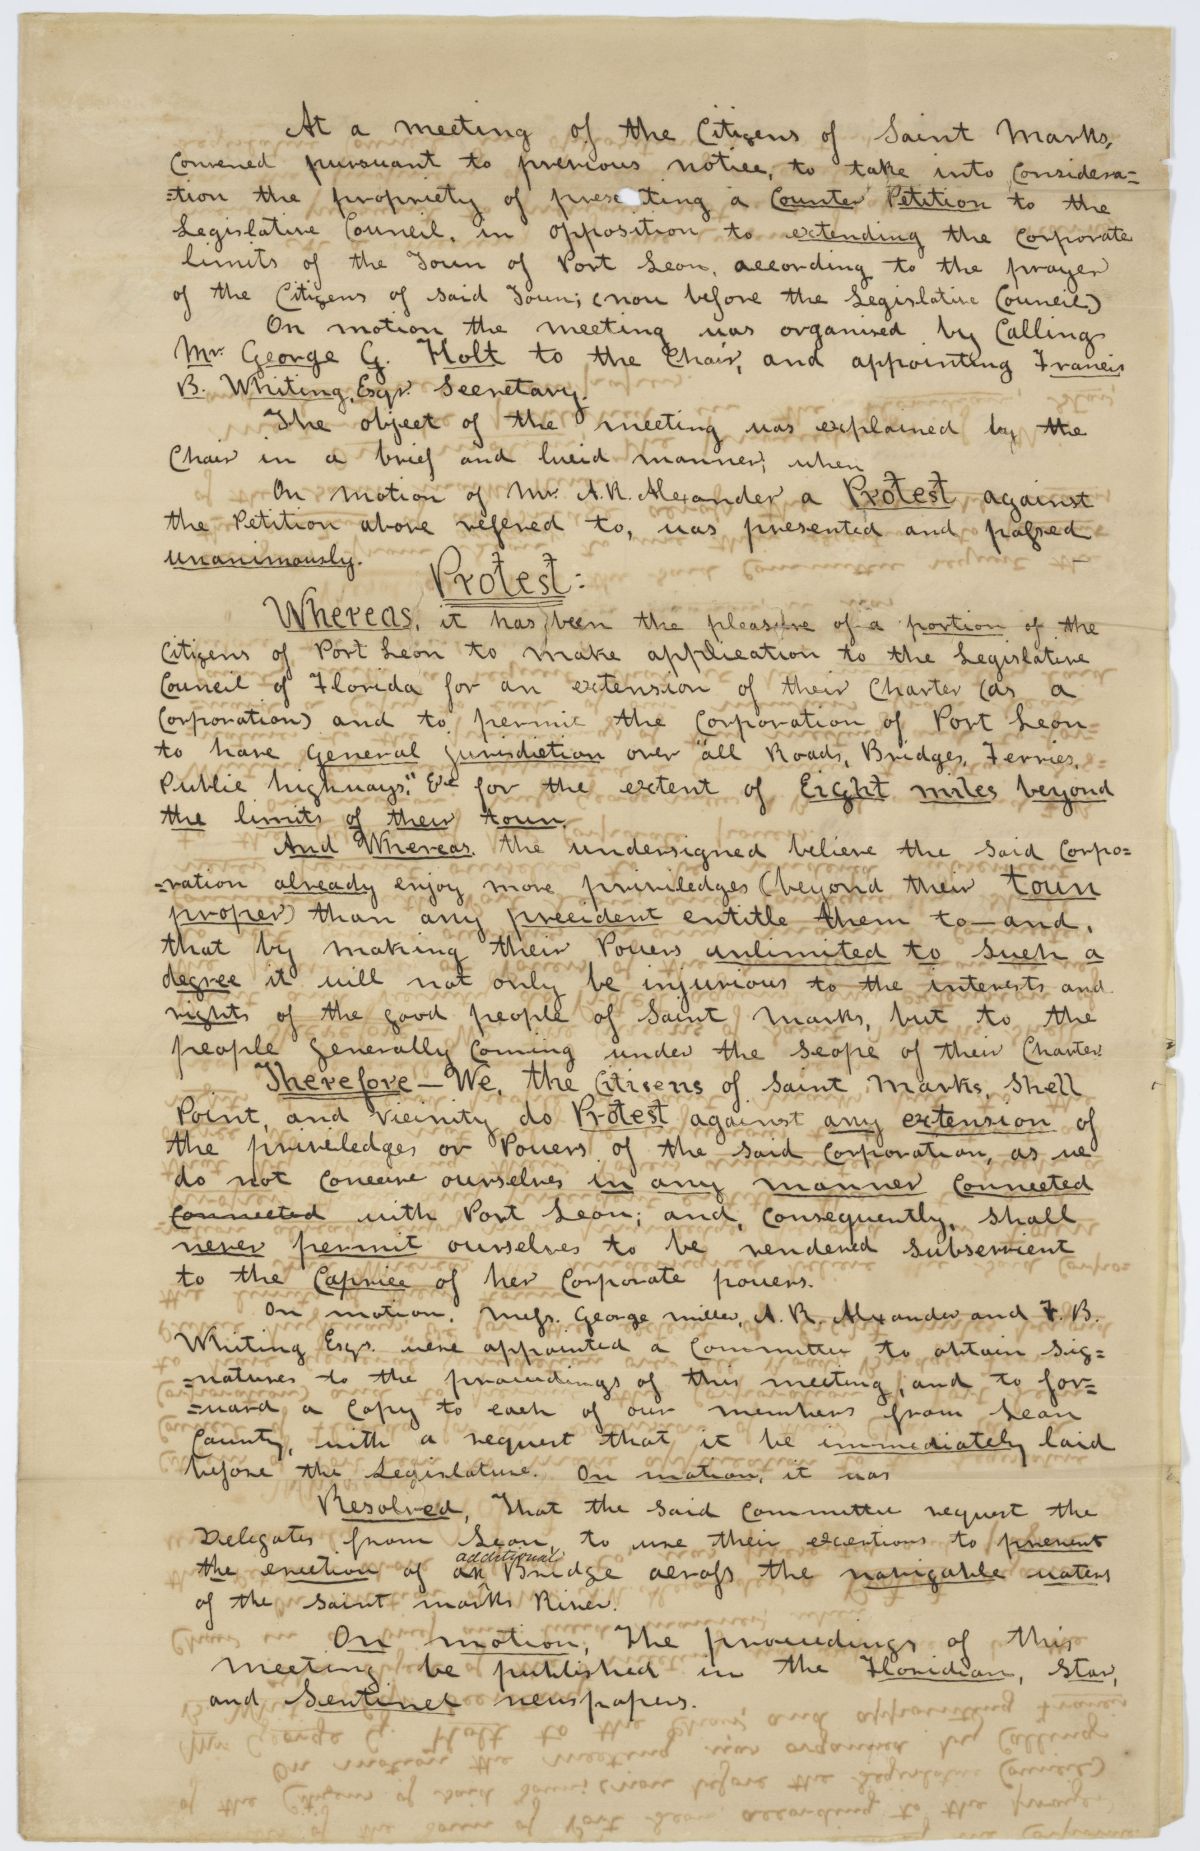 At a meeting of the Citizens of Saint Marks,
Convened pursuant to previous notice, to take into Considera=
=tion the propriety of prese ting a Counter Petition to the
Legislative Council, in opposition to extending the Corporate
limits of the Town of Port Leon, according to the prayer
of the Citizens of said Town; (now before the Legislative Council)
On motion the meeting was organised by Calling
Mr George G. Holt to the Chair, and appointing Francis
B. Whiting, Esqr. Secretary.
The object of the meeting was explained by the
Chair in a brief and lucid manner; when
On motion of Mr. A.R. Alexander a Protest against
the Petition above refered to, was presented and passed
unanimously.
Protest:
Whereas, it has been the pleasure of a portion of the
Citizens of Port Leon to make application to the Legislative
Council of Florida for an extension of their Charter (as a
Corporation) and to permit the Corporation of Port Leon
to have General jurisdiction over "all Roads, Bridges, Ferries,
Public highways," &c for the extent of Eight miles beyond
the limits of their town.
And Whereas, the undersigned believe the said Corpo=
=ration already enjoy more priviledges (beyond their town
proper) than any precident entitle them to — and,
that by making their Powers unlimited to Such a
degree it will not only be injurious to the interests and
rights of the good people of Saint Marks, but to the
people Generally Coming under the Scope of their Charter.
Therefore — We, the Citizens of Saint Marks, Shell
Point, and vicinity do Protest against any extension of
the priviledges or Powers of the said Corporation, as we
do not Conceive ourselves in any manner Connected
Connected with Port Leon; and, Consequently, Shall
never permit ourselves to be rendered Subservient
to the Caprice of her Corporate powers.
On motion, Messs. George Miller, A. R. Alexander and F. B.
Whiting Esqs. were appointed a Committee to obtain Sig=
=natures to the proceedings of this meeting, and to for=
=ward a Copy to each of our members from Leon
County, with a request that it be immediately laid
before the Legislature. On motion, it was
Resolved, That the said Committee request the
Delegates from Leon to use their exertions to prevent
the erection of an additional Bridge across the navigable waters
of the Saint Marks River.
On motion, The proceedings of this
meeting be published in the Floridian, Star,
and Sentinel newspapers.